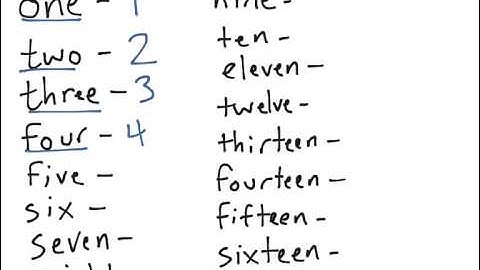 one - 1
two - 2
three - 3
four - 4
five -
six -
seven -
eight
nine -
ten -
eleven -
twelve -
thirteen -
fourteen -
fifteen -
sixteen -